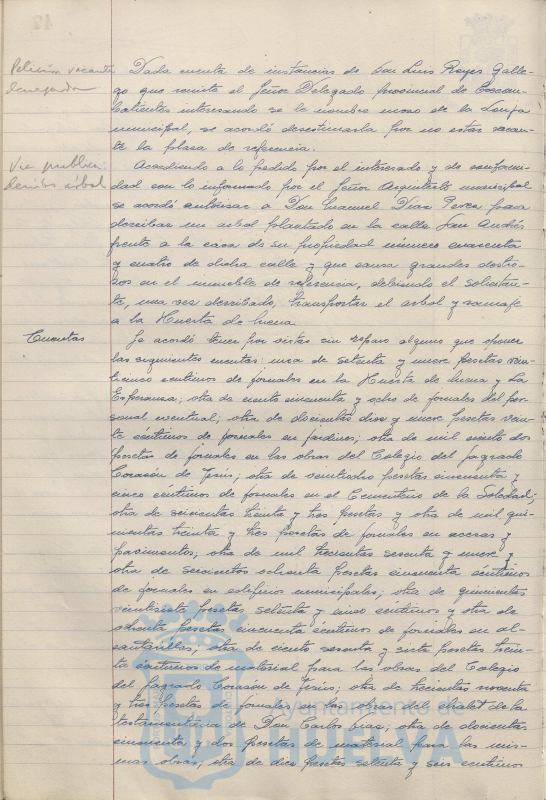 Petición vacante
denegada
Dada cuenta de instancias de Don Luis Reyes Galle-
go que remite el Señor Delegado provincial de Excom-
batientes interesando se le nombre mozo de la Lonja
municipal, se acordó desestimarla por no estar vacan-
te la plaza de referencia.
Via publica:
derribo árbol
Accediendo a lo pedido por el interesado y de conformi-
dad con lo informado por el Señor Arquitecto municipal
se acordó autorizar a Don Manuel Diaz para
derribar un arbol plantado en la calle San Andrés
frente a la casa de su propiedad número cuarenta
y cuatro de dicha calle y que causa grandes destro-
zos en el inmueble de referencia, debiendo el solicitan-
te, una vez derribado, transportar el arbol y ramaje
a la Huerta de Mena.
Cuentas
Se acordó tener por vistas sin reparo alguno que oponer
las siguientes cuentas: una de setenta y nueve pesetas vein-
ticinco centimos de jornales en la Huerta de Mena y La
Esperanza; otra de ciento cincuenta y ocho de jornales del per-
sonal eventual; otra de doscientas diez y nueve pesetas vein-
te céntimos de jornales en jardines; otra de mil ciento dos
pesetas de jornales en las obras del Colegio del Sagrado
Corazón de Jesús; otra de veinticuatro pesetas cincuenta y
cinco céntimos de jornales en el Cementerio de la Soledad;
otra de seiscientas treinta y tres pesetas y otra de mil qui-
nientas treinta y tres pesetas de jornales en aceras y
pavimentos; otra de mil trescientas sesenta y nueve y
otra de seiscientas ochenta pesetas cincuenta céntimos
de jornales en edificios municipales; otra de quinientas
veintisiete pesetas setenta y cinco centimos y otra de
ochenta pesetas cincuenta céntimos de jornales en al-
cantarillas; otra de ciento sesenta y siete pesetas trein-
ta centimos de material para las obras del Colegio
del Sagrado Corazón de Jesús; otra de trescientas noventa
y tres pesetas de jornales en las obras del chalet de la
testamentaría de Don Carlos Diaz; otra de doscientas
cincuenta y dos pesetas de material para las mis-
mas obras; otra de diez pesetas setenta y seis centimos
Ayuntamiento de
HUELVA